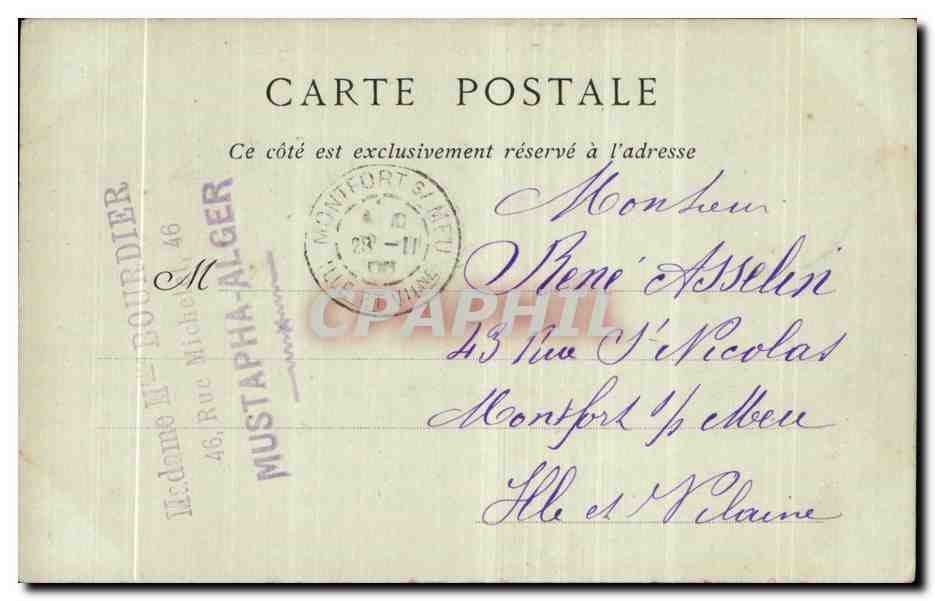 CARTE POSTALE
Ce côté est exclusivement réservé à l'adresse
MONTFORT S/ MEU
28 -11
ILLE ET VILAINE
M
Monsieur
René Asselin
43 Rue St Nicolas
Montfort s/ Meu
Ille et Vilaine
Madame BOURDIER
46, Rue Michelet, 46
MUSTAPHA-ALGER
CPAPHIL